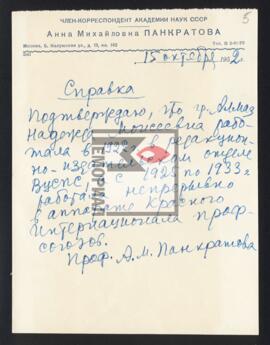 5
ЧЛЕН-КОРРЕСПОНДЕНТ АКАДЕМИИ НАУК СССР
Анна Михайловна ПАНКРАТОВА
Москва, Б. Калужская ул., д. 13, кв.
15 октября 1952 г.
Справка
Подтверждаю, что гр. Алмаз
Надежда Моисеевна рабо-
тала в 1928 г. в редакцион-
но-издательском отделе
ВЦСПС, а с 1928 по 1933 г.
работала непрерывно
в аппарате Красного
Интернационала Проф-
союзов.
Проф. А. М. Панкратова
МЕМОРИАЛ